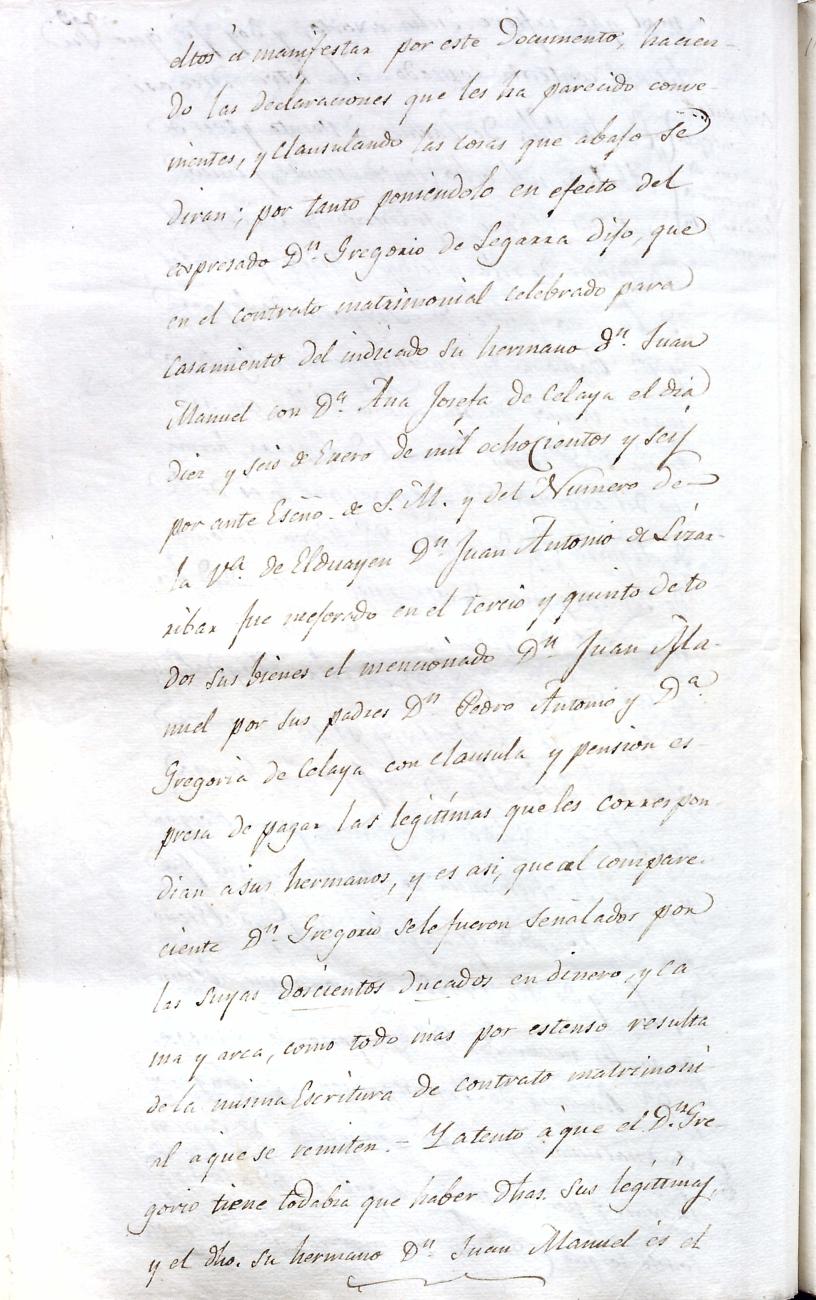 eltos á manifestar por este Documento, hacien-
do las declaraciones que les ha parecido conve-
nientes, y clausulando las cosas que abajo se
diran; por tanto poniéndolo en efecto del
expresado Dn. Gregorio de Segarra dijo, que
en el contrato matrimonial celebrado para
Casamiento del indicado su hermano Dn. Juan
Manuel con Da. Ana Josefa de Celaya el dia
diez y seis de Enero de mil ochocientos y seis
por ante Esño. de S. M. y del Numero de
la Va. de Elduayen Dn Juan Antonio de Lizar-
ribar fue mejorado en el tercio y quinto de to
dos sus bienes el mencionado Dn Juan Ma-
nuel por sus padres Dn Pedro Antonio y Da.
Gregoria de Celaya con clausula y pension es-
presa de pagar las legitimas que les correspon-
dian a sus hermanos, y es asi, que al compare-
ciente Dn. Gregorio se le fueron señalados por
las suyas doscientos ducados en dinero, y ca
ma y arca, como todo mas por estenso resulta
de la misma Escritura de contrato matrimoni-
al à que se remiten. = Y atento à que el Dn. Gre-
gorio tiene todabia que haber dhas. sus legitimas,
y el dho. su hermano Dn Juan Manuel es el